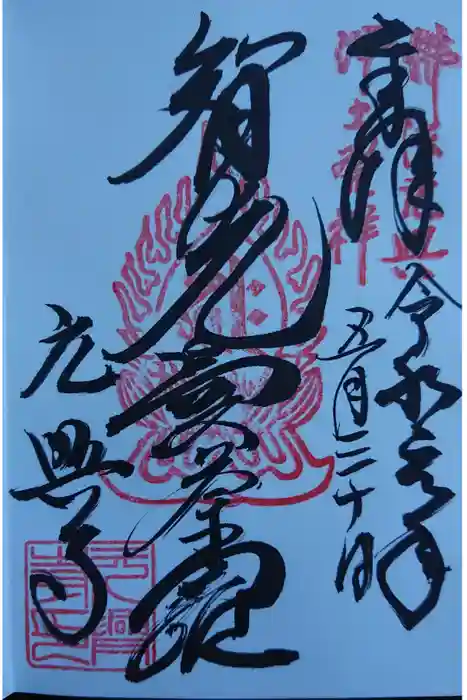 奉拝
令和元年
五月二十日
智光曼荼羅
元興寺